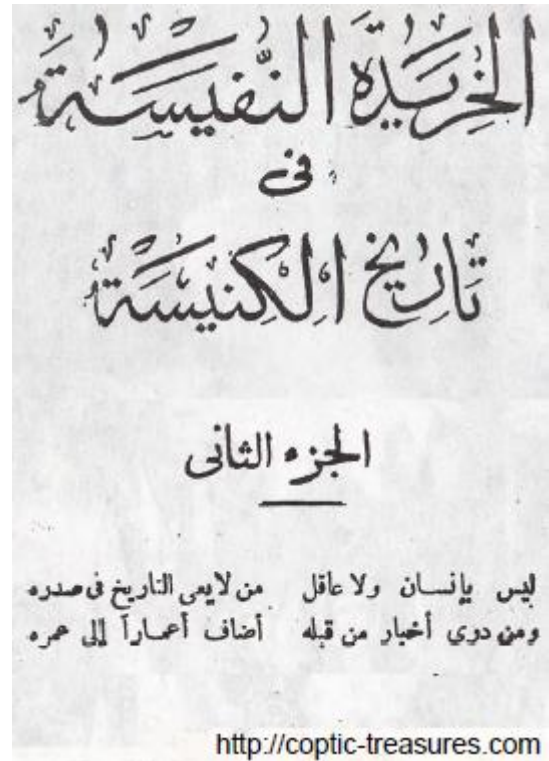 الخَرِيدَة النَّفيسَة
فى
تَارِيخ الكَنِيسَة
الجزء الثانى
ليس بإنسان ولا عاقل من لا يعى التاريخ فى صدره
ومن درى أخبار من قبله أضاف أعماراً إلى عمره
http://coptic-treasures.com